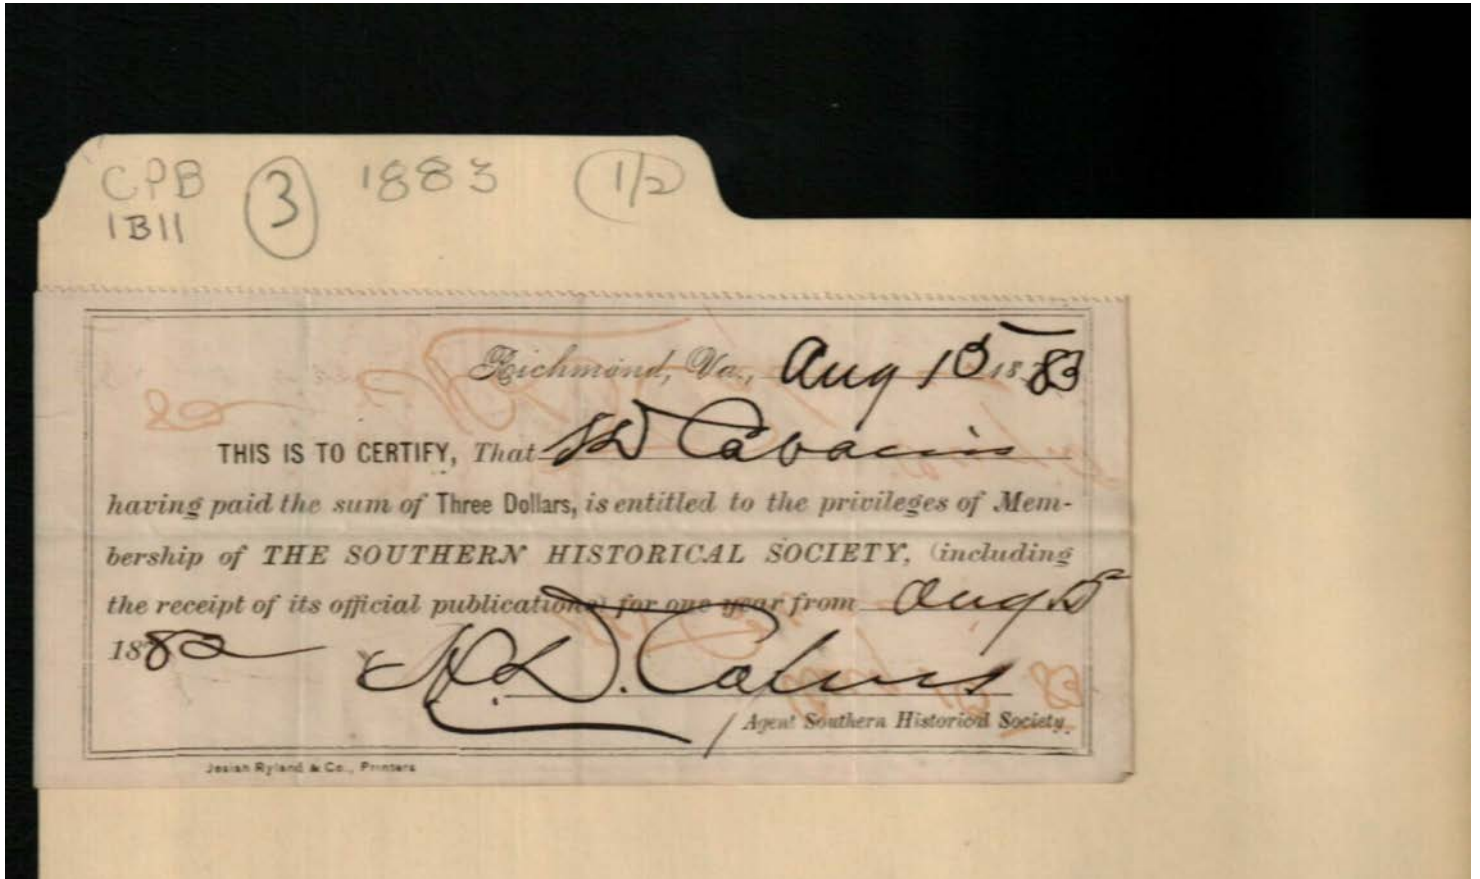 CPB ③ 1883 (1/2)
1B11
Richmond, Va., Aug 10 1883
THIS IS TO CERTIFY, That
having paid the sum of Three Dollars, is entitled to the privileges of Mem-
bership of THE SOUTHERN HISTORICAL SOCIETY, (including
the receipt of its official publications) for one year from Aug
1882
Agent Southern Historical Society.
Josiah Ryland & Co., Printers